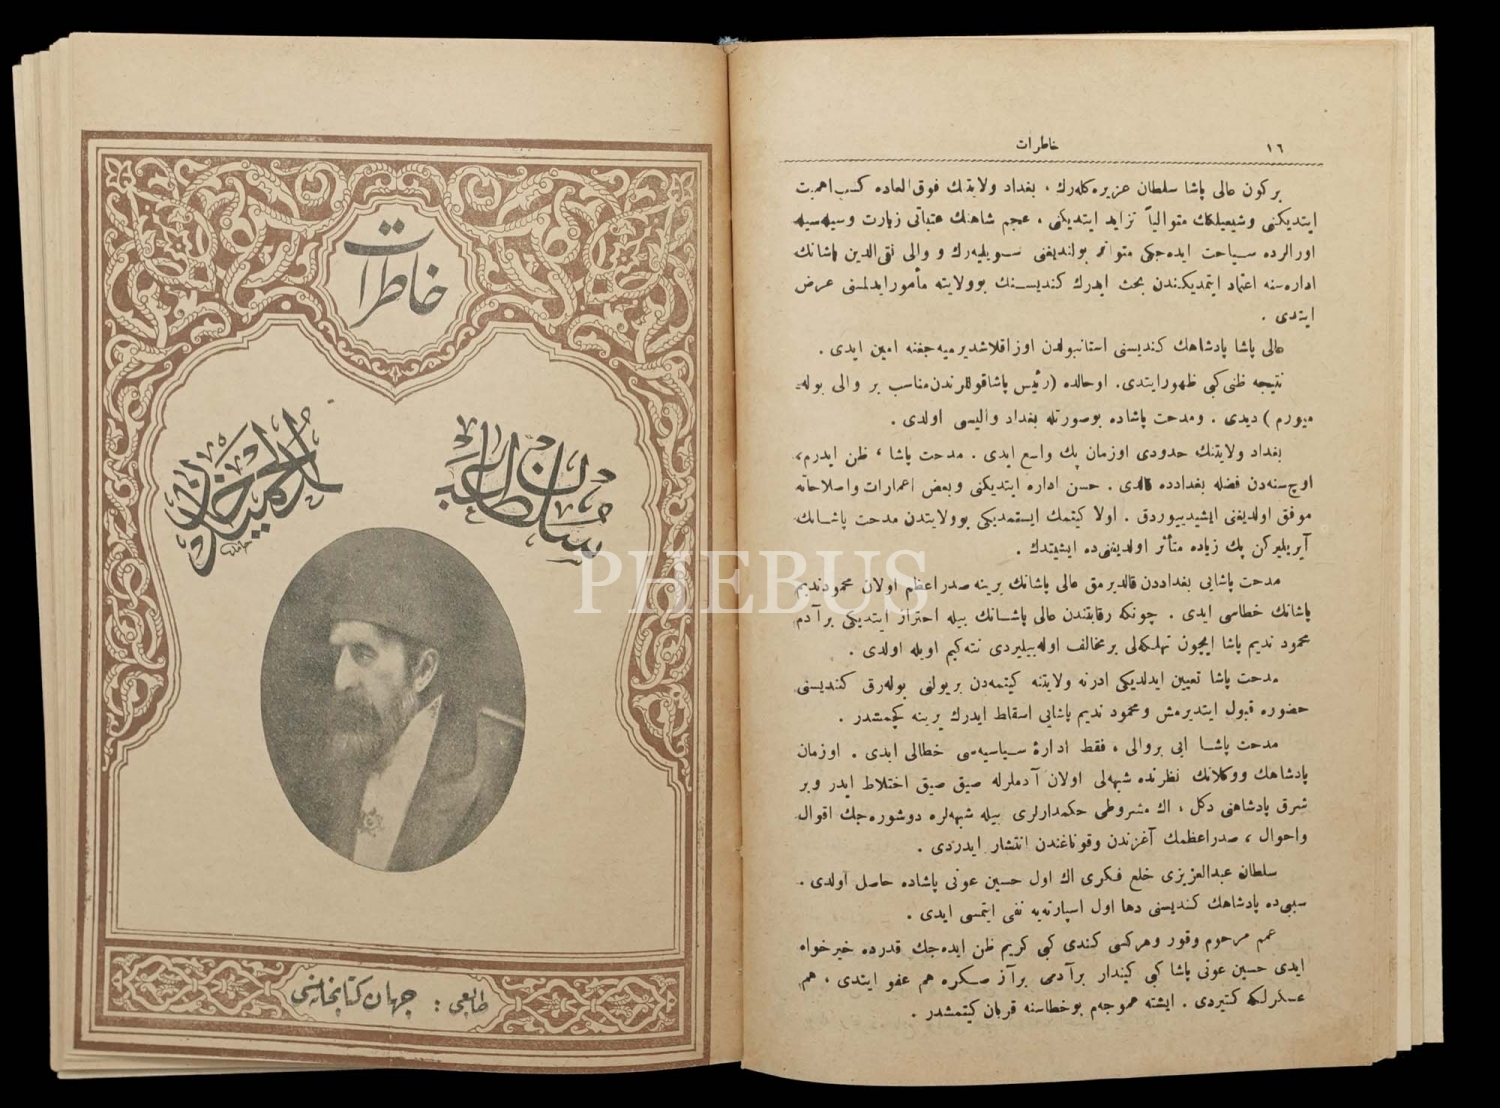 خاطرات
سلطان عبد
الحمید خان
طابعی : جهان کتابخانه‌سی
PHEBUS
١٦
خاطرات
برکون عالی پاشا سلطان عزیزه کله‌رك ، بغداد ولایتنك فوق العاده کسب اهمیت
ایتدیکنی وشیعیلکك متوالیاً تزاید ایتدیکنی ، عجم شاهنك عتباتی زیارت وسیله‌سیله
اورالرده سیاحت ایده‌جکی متواتر بولندیغنی سویلیه‌رك و والی تقی‌الدین پاشانك
اداره‌سنه اعتماد ایتمدیکندن بحث ایدرك کندیسنك بوولایته مأمورایدلمسنی عرض
ایتدی .
عالی پاشا پادشاهك کندیسنی استانبولدن اوزاقلاشدیرمیه‌جغنه امین ایدی .
نتیجه ظنی کبی ظهورایتدی. اوحالده (رئیس پاشاقوللرندن مناسب بر والی بوله‌
میورم) دیدی . ومدحت پاشاده بوصورتله بغداد والیسی اولدی .
بغداد ولایتنك حدودی اوزمان پك واسع ایدی . مدحت پاشا ، ظن ایدرم،
اوچ سنه‌دن فضله بغدادده قالدی . حسن اداره ایتدیکنی وبعض اعمارات واصلاحاته
موفق اولدیغنی ایشیدییوردق . اولا کیتمك ایستمدیکی بوولایتدن مدحت پاشانك
آیریلیرکن پك زیاده متأثر اولدیغنی‌ده ایشیتدك .
مدحت پاشایی بغداددن قالدیرمق عالی پاشانك یرینه صدراعظم اولان محمودندیم
پاشانك خطاسی ایدی . چونکه رقابتندن عالی پاشانك بیله احتراز ایتدیکی برآدم
محمود ندیم پاشا ایچون تهلکه‌لی برمخالف اوله‌بیلیردی نته‌کیم اویله اولدی .
مدحت پاشا تعیین ایدلدیکی ادرنه ولایتنه کیتمه‌دن بریولنی بوله‌رق کندیسنی
حضوره قبول ایتدیرمش ومحمود ندیم پاشایی اسقاط ایدرك یرینه کچمشدر .
مدحت پاشا ایی بروالی ، فقط ادارهٔ سیاسیه‌سی خطالی ایدی . اوزمان
پادشاهك ووکلانك نظرنده شبهه‌لی اولان آدملرله صیق صیق اختلاط ایدر وبر
شرق پادشاهنی دکل ، اك مشروطی حکمدارلری بیله شبهه‌لره دوشوره‌جك اقوال
واحوال ، صدراعظمك آغزندن وقوناغندن انتشار ایدردی .
سلطان عبدالعزیزی خلع فکری اك اول حسین عونی پاشاده حاصل اولدی .
سببی‌ده پادشاهك کندیسنی دها اول اسپارته‌یه نفی ایتمسی ایدی .
عمم مرحوم وقور وهرکسی کندی کبی کریم ظن ایده‌جك قدرده خیرخواه
ایدی حسین عونی پاشا کبی کیندار برآدمی برآز صکره هم عفو ایتدی ، هم
عسکرلکه کتیردی . ایشته عموجه‌م بوخطاسنه قربان کیتمشدر .